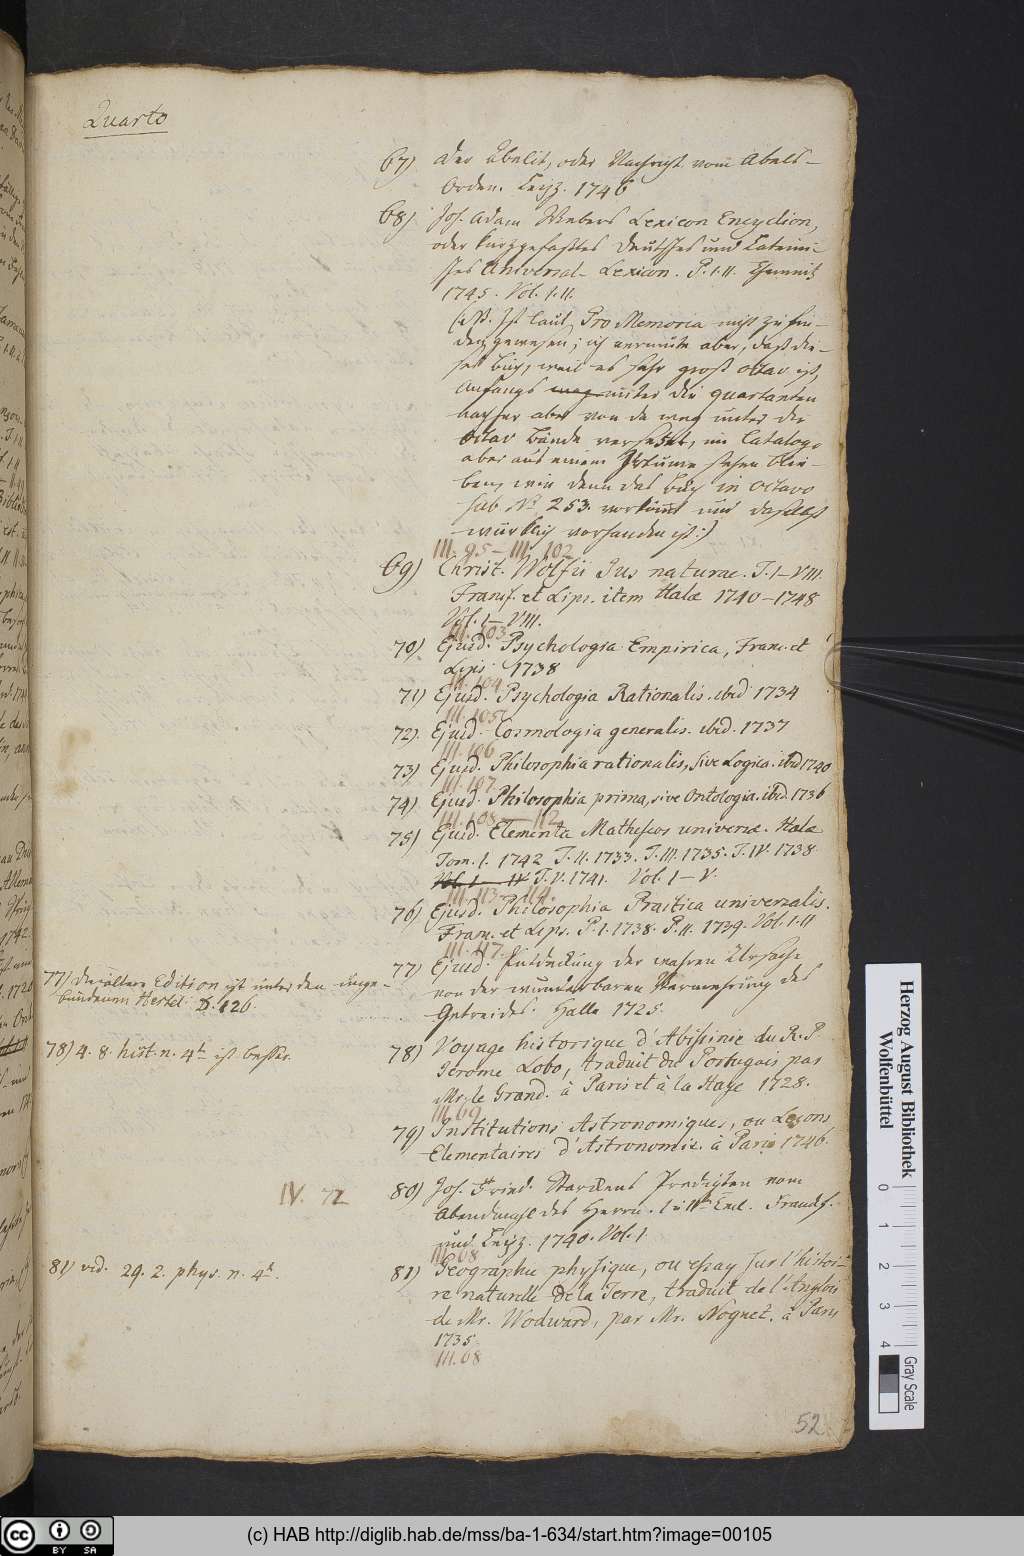 Quarto
67) Der Abelit, oder Nachricht vom Abels-
Orden. Leipz. 1746
68) Joh. Adam Webers Lexicon Encyclion,
oder kurzgefaßtes Deutsches und Lateini-
sches Universal-Lexicon. P. I. II. Chemnitz
1745. Vol. I. II.
(NB. Ist laut Pro Memoria nicht zu fin-
den gewesen; ich vermute aber, daß die-
ses Buch, weil es sehr groß octav ist,
Anfangs unter die Quartanten
nachher aber von da weg unter die
Octav Bände versetzt, im Catalogo
aber aus einem Irrtume stehen blie-
ben, wie denn das Buch in Octavo
sub No 253. vorkömt und daselbst
würklich vorhanden ist.)
III. 95 – III. 102
69) Christ. Wolfii Jus naturae. T. I–VIII.
Francf. et Lips. item Halæ 1740–1748
Vol. I–VIII.
III. 103
70) Ejusd. Psychologia Empirica, Franc. et
Lips. 1738
III. 104
71) Ejusd. Psychologia Rationalis. ibid 1734
III. 105
72). Ejusd. Cosmologia generalis. ibid. 1737
III. 106
73) Ejusd. Philosophia rationalis, sive Logica. ibid 1740
III. 107
74) Ejusd. Philosophia prima, sive Ontologia. ibid. 1736
III. 108 – 112
75) Ejusd. Elementa Matheseos universæ. Halæ
Tom. I. 1742 T. II. 1733. T. III. 1735. T. IV. 1738
Vol. I – IV T. V. 1741. Vol. I – V.
III. 113 – 114.
76) Ejusd. Philosophia Practica universalis.
Franc. et Lips. P. I. 1738. P. II. 1739. Vol. I. II
III. 117.
77) Ejusd. Entdeckung der wahren Ursache
von der wunderbaren Vermehrung des
Getreides. Halle 1725.
77) Die ältere Edition ist unter den unge-
bundenen Hertel: D. 126.
78) 4. 8. hist. n. 4to ist besser.
78) Voyage historique d'Abissinie du R. P.
Jerome Lobo, traduit du Portugais par
Mr. le Grand. à Paris et à la Haye 1728.
III. 69
79) Institutions Astronomiques, ou Leçons
Elementaires d'Astronomie. à Paris 1746.
IV. 72
80) Joh. Fried. Starckens Predigten vom
Abendmahl des Herrn. Francf.
und Leipz. 1740. Vol. I
III. 68
81) vid. 29. 2. phys. n. 4to.
81) Geographie physique, ou essay sur l'histoi-
re naturelle de la Terre, traduit de l'Anglois
de Mr. Wodward, par Mr. Noguez. à Paris
1735
III. 68
52
Herzog August Bibliothek
Wolfenbüttel
0 1 2 3 4
Gray Scale
(c) HAB http://diglib.hab.de/mss/ba-1-634/start.htm?image=00105
CC BY SA